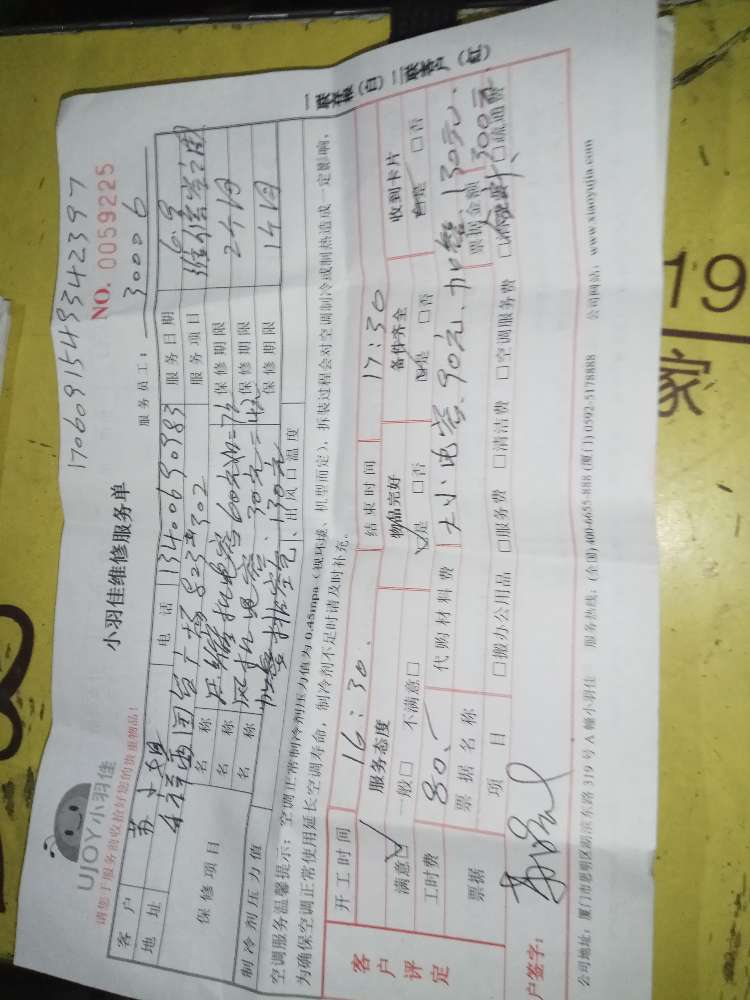 17060915494342397
UJOY小羽佳
小羽佳维修服务单
NO. 0059225
请您于服务商收拾好您的贵重物品!
服务员工: 30006
客户 苏小姐 电话 13400690983 服务日期 6.9
地址 823#302 服务项目
保修项目
名称 压缩机电容 60元 保修期限 2个月
名称 风机电容 30元 保修期限
名称 排空 130元 保修期限 1个月
制冷剂压力值 出风口温度
空调服务温馨提示: 空调正常制冷剂压力值为0.45mpa(视环境、机型而定), 拆装过程会对空调制冷或制热造成一定影响,
为确保空调正常使用延长空调寿命, 制冷剂不足时请及时补充。
一联存根(白) 二联客户(红)
客户评定
开工时间 16:30. 结束时间 17:30
服务态度 物品完好 备件齐全 收到卡片
满意□ 一般□ 不满意□ □是 □否 □是 □否 □是 □否
工时费 80.- 代购材料费 大小电容.90元.加 130元.
票据 票据名称 票据金额 300元
项目 □搬办公用品 □服务费 □清洁费 □空调服务费 □疏通费
户签字:
公司地址: 厦门市思明区湖滨东路319号A幢小羽佳 服务热线: (全国)400-6655-888 (厦门)0592-5178888 公司网站: www.xiaoyujia.com
19
家